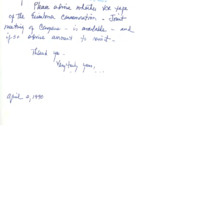 Please advise whether the tape
of the Eisenhower Commemoration - Joint
meeting of Congress - is available - and
if so advise amount to remit -
Thank you -
Very truly yours,
April 9, 1990